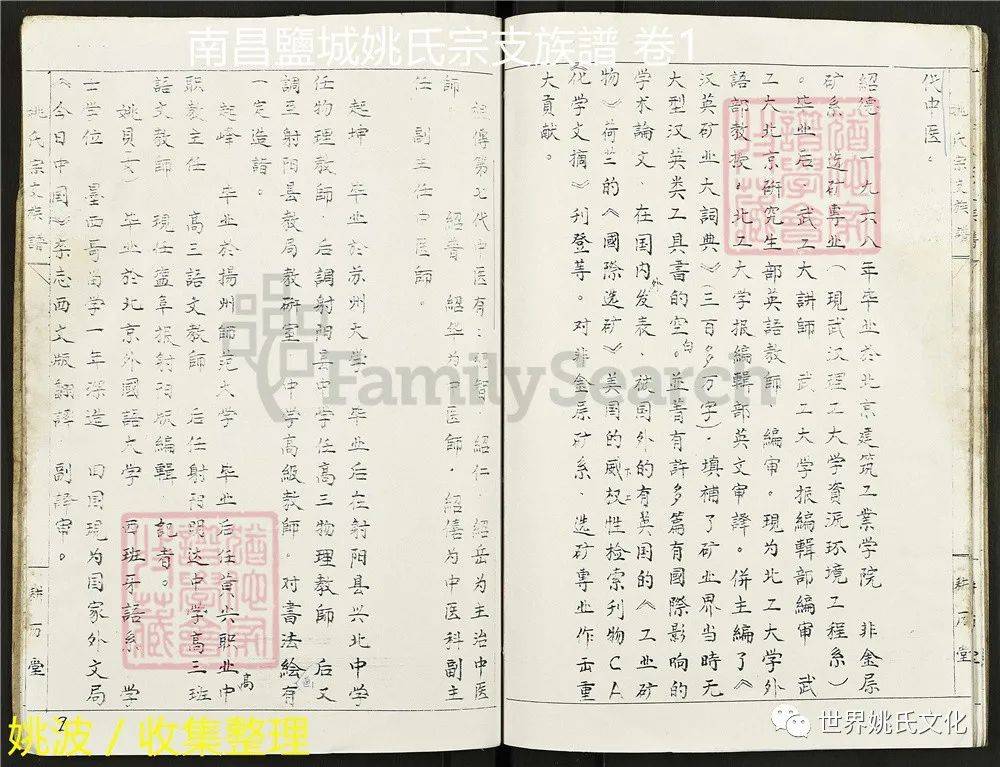 南昌鹽城姚氏宗支族譜 卷1
代中医。
紹德 一九六八年卒业於北京建筑工業学院 非金属
矿系 选矿專业（現武汉理工大学資沅环境工程系）
。毕业后 武工大讲师 武工大学振編輯部編审 武
工大北京研究生部英語教师 編审。現为北工大学外
語部教授。北工大学报編輯部英文审譯。併主編了《
汉英矿业大詞典》（三百多万字）．填補了矿业界当時无
大型汉英类工具書的空白。並著有許多篇有國際影响的
学术論文．在国内外发表．被国外的有英国的《工业矿
物》荷兰的《國際选矿》美国的威权性检索刊物CA
化学文摘》刊登等。对非金属矿系．选矿專业作出重
大貢献。
姚氏宗支族譜
耕历堂
祖傳第七代中医有：紹智．紹仁．紹岳为主治中医
師． 紹普 紹华为中医師．紹僖为中医科副主
任 副主任中医師。
起坤 毕业於苏州大学 毕业后在射阳县兴北中学
任物理教師．后調射阳县中学任高三物理教師 后又
調至射阳县教局教研室 中学高級教師．对書法繪画有
一定造詣。
起峰 毕业於揚州師范大学 毕业后任黄尖职业中
职教主任 高三語文教師 后任射阳明达中学高三班
語文教師 現任盐阜报射阳版編輯．記者。
姚貝 毕业於北京外國語大学 西班牙語系 学
士学位 墨西哥留学一年深造 回国現为国家外文局
《今日中国》杂志西文版翻譯．副譯审。
姚氏宗支族譜
耕历堂
2
FamilySearch
姚波／收集整理
世界姚氏文化